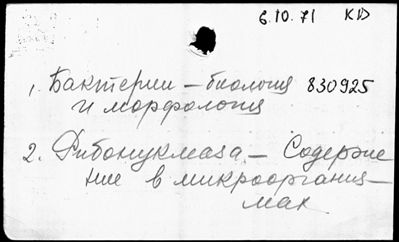 6.10.71 KD
1. Бактерии – биология 830925
и морфология
2. Рибонуклеаза – Содержа
ние в микроорганиз-
мах